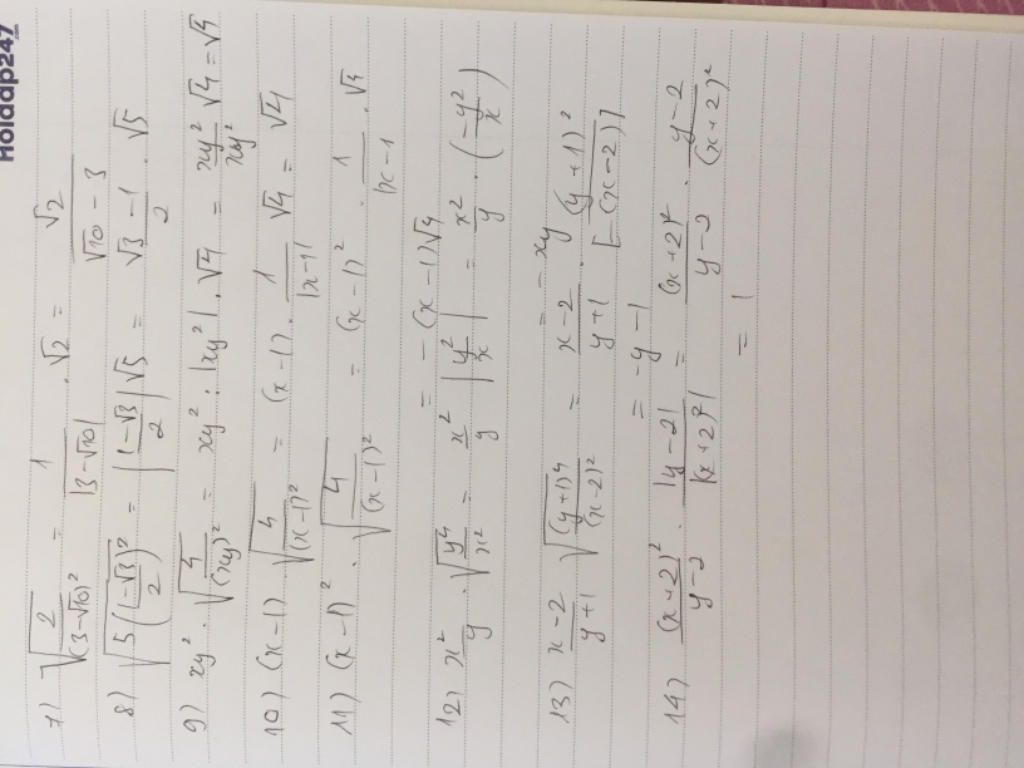 Hoidap247.com
7) √(2/(3-√10)²) = 1/|3-√10| . √2 = √2/(√10 - 3)
8) √(5((1-√3)/2)²) = |(1-√3)/2|√5 = (√3 - 1)/2 . √5
9) xy² . √(4/(xy)²) = xy² : |xy²| . √4 = xy²/xy² √4 = √4
10) (x-1) √(4/(x-1)²) = (x-1) . 1/|x-1| √4 = √4
11) (x-1)² . √(4/(x-1)²) = (x-1)² . 1/|x-1 . √4
= -(x-1)√4
12) x²/y . √(y⁴/x²) = x²/y |y²/x| = x²/y . (-y²/x)
= -xy
13) (x-2)/(y+1) √((y+1)⁴/(x-2)²) = (x-2)/(y+1) . (y+1)²/[-(x-2)]
= -y-1
14) (x+2)²/(y-2) . |y-2|/|(x+2)²| = (x+2)²/(y-2) . (y-2)/(x+2)²
= 1